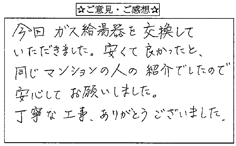 ☆ご意見・ご感想☆
今回 ガス給湯器を交換して
いただきました。安くて良かったと、
同じマンションの人の紹介でしたので
安心してお願いしました。
丁寧な工事、ありがとうございました。